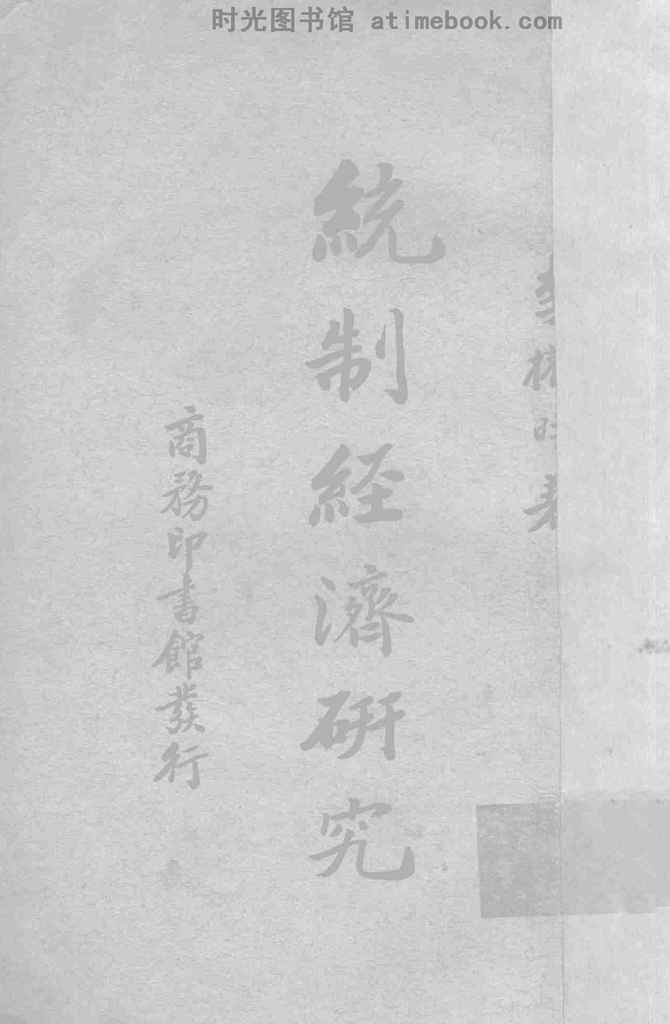 时光图书馆 atimebook.com
著
統制經濟研究
商務印書館發行